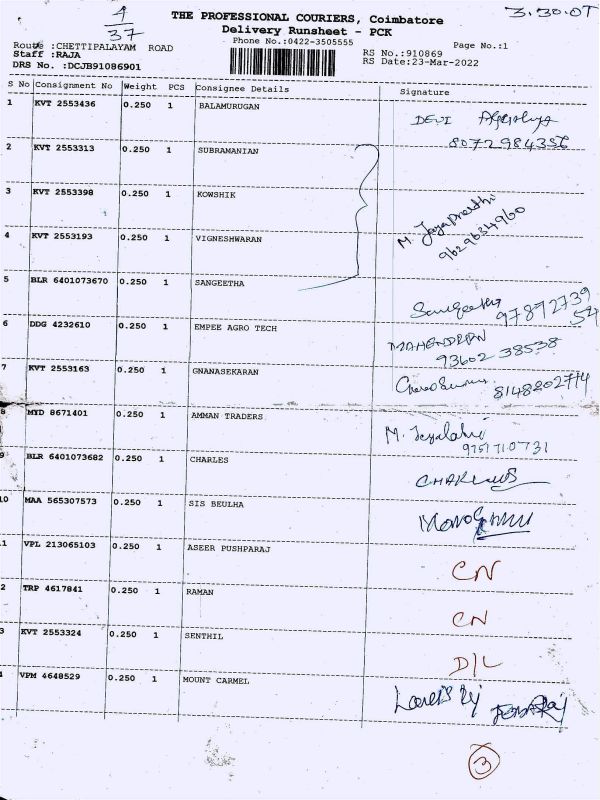 4
37
3.30.07
THE PROFESSIONAL COURIERS, Coimbatore
Delivery Runsheet - PCK
Phone No.:0422-3505555
Route :CHETTIPALAYAM ROAD
Staff :RAJA
DRS No. :DCJB91086901
RS No.:910869
RS Date:23-Mar-2022
Page No.:1
S No Consignment No Weight PCS Consignee Details Signature
1 KVT 2553436 0.250 1 BALAMURUGAN DEVI
8072984356
2 KVT 2553313 0.250 1 SUBRAMANIAN
3 KVT 2553398 0.250 1 KOWSHIK
M. Jayapreethi
9629684960
4 KVT 2553193 0.250 1 VIGNESHWARAN
5 BLR 6401073670 0.250 1 SANGEETHA Sangeetha
97892739
54
6 DDG 4232610 0.250 1 EMPEE AGRO TECH MAHENDRAN
93602 38538
7 KVT 2553163 0.250 1 GNANASEKARAN 8148202774
8 MYD 8671401 0.250 1 AMMAN TRADERS M.
9751710731
9 BLR 6401073682 0.250 1 CHARLES
10 MAA 565307573 0.250 1 SIS BEULHA
1 VPL 213065103 0.250 1 ASEER PUSHPARAJ CN
2 TRP 4617841 0.250 1 RAMAN CN
3 KVT 2553324 0.250 1 SENTHIL D/L
4 VPM 4648529 0.250 1 MOUNT CARMEL
3